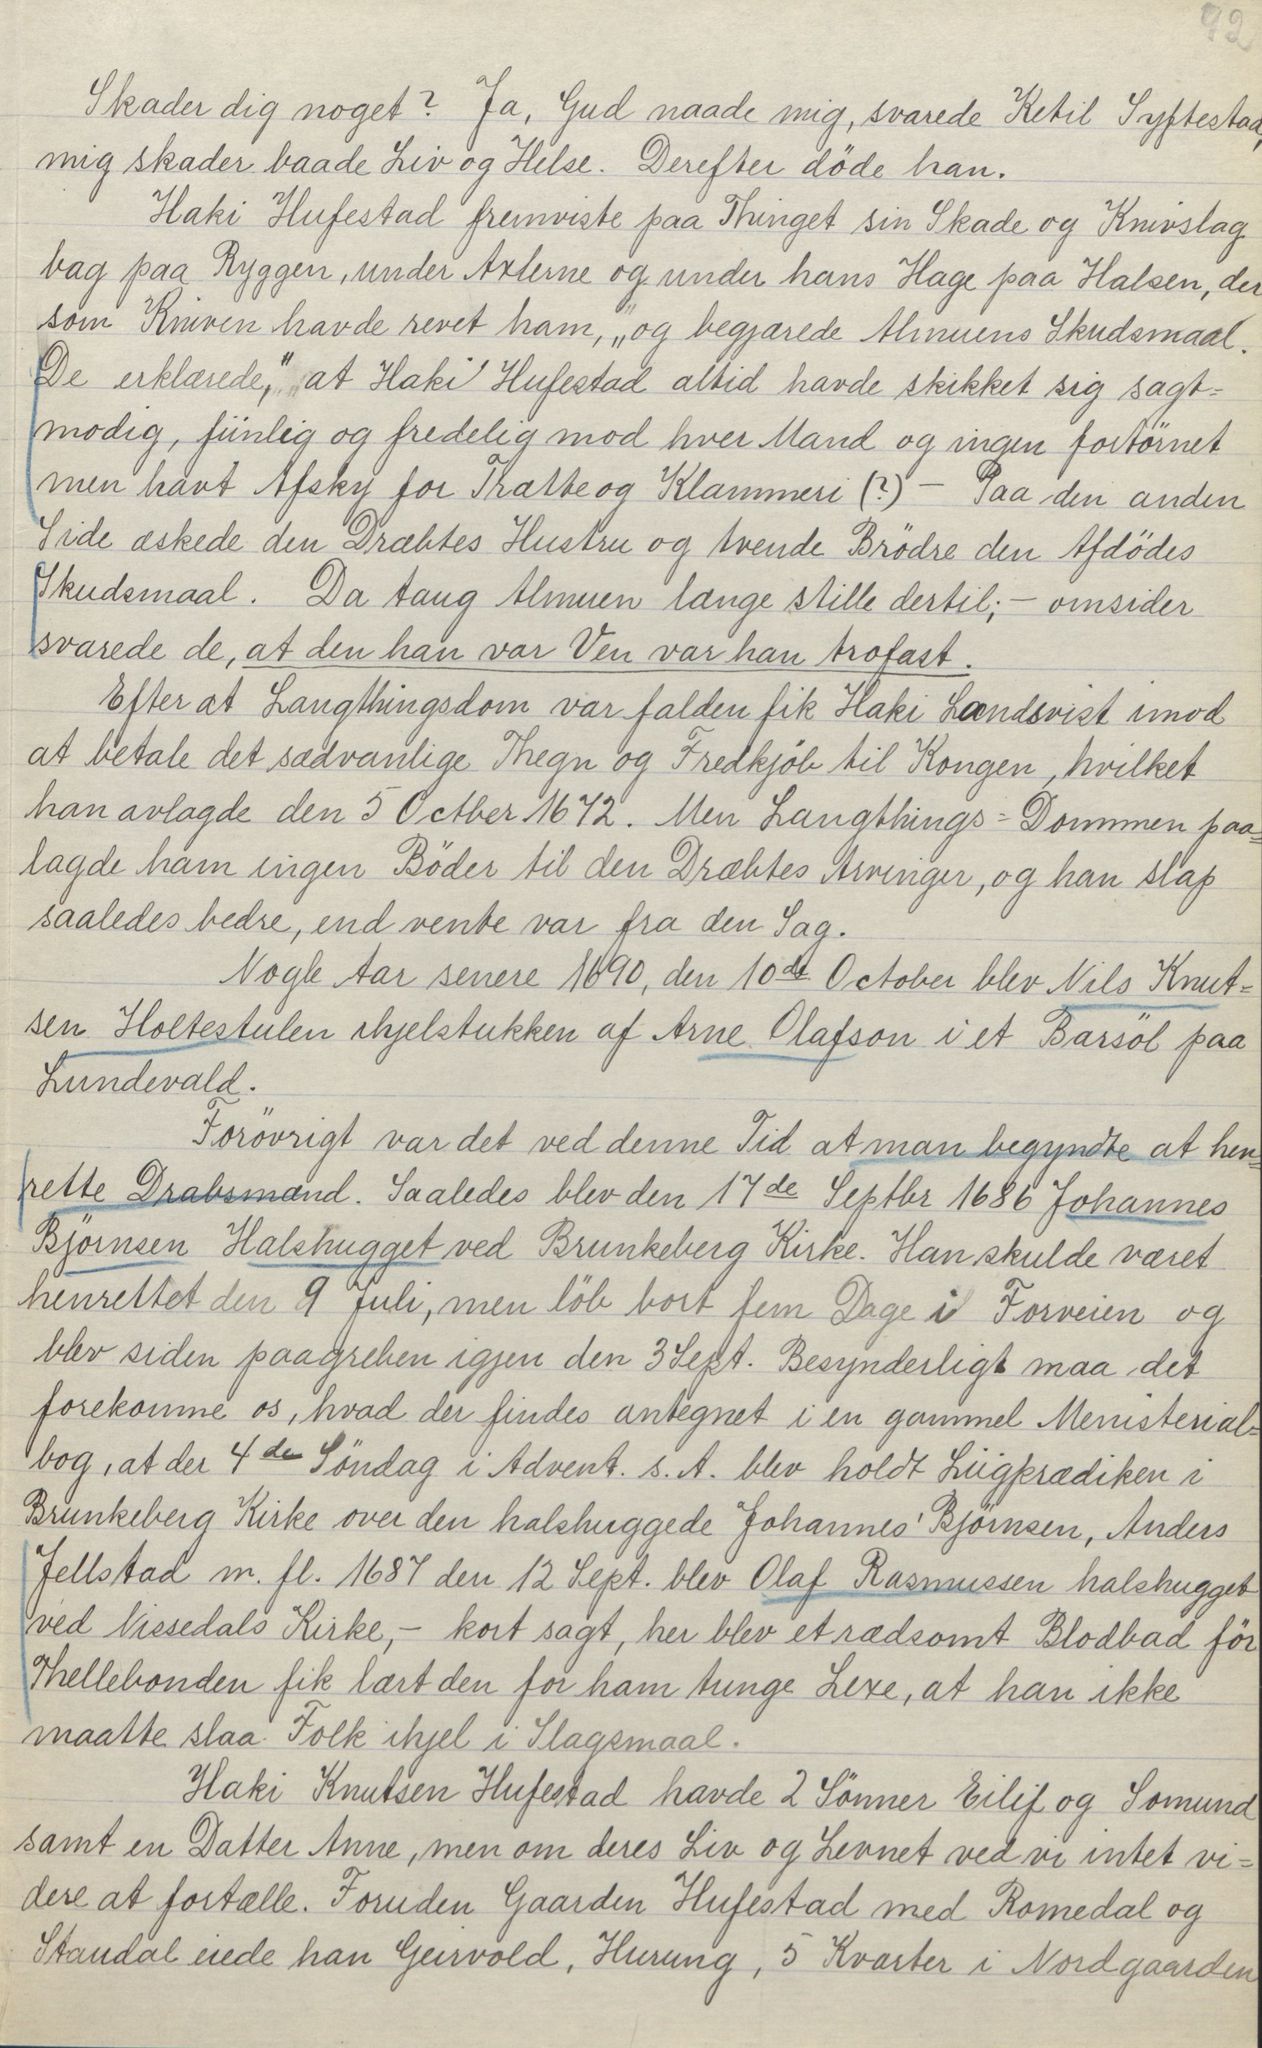 92
Skader dig noget? Ja, Gud naade mig, svarede Ketil Syftestad,
mig skader baade Liv og Helse. Derefter döde han.
Haki Hufestad fremviste paa Thinget sin Skade og Knivslag
bag paa Ryggen, under Axlerne og under hans Hage paa Halsen, der
som Kniven havde revet ham, „og begjærede Almuens Skudsmaal.
De erklærede," at Haki Hufestad altid havde skikket sig sagt=
modig, fiinlig og fredelig mod hver Mand og ingen fortörnet
men havt Afsky for Trætte og Klammeri (?) — Paa den anden
Side æskede den Dræbtes Hustru og tvende Brödre den Afdödes
Skudsmaal. Da taug Almuen længe stille dertil; — omsider
svarede de, at den han var Ven var han trofast.
Efter at Langthingsdom var falden fik Haki Landsvist imod
at betale det sædvanlige Thegn og Fredkjöb til Kongen, hvilket
han avlagde den 5 Octber 1672. Men Langthings=Dommen paa=
lagde ham ingen Böder til den Dræbtes Arvinger, og han slap
saaledes bedre, end vente var fra den Sag.
Nogle Aar senere 1690, den 10de October blev Nils Knut=
sen Holtestulen ihjelstukken af Arne Olafson i et Barsöl paa
Lundevald.
Forövrigt var det ved denne Tid at man begyndte at hen=
rette Drabsmænd. Saaledes blev den 17de Septbr 1686 Johannes
Björnsen Halshugget ved Brunkeberg Kirke. Han skulde været
henrettet den 9 Juli, men löb bort fem Dage i Forveien og
blev siden paagreben igjen den 3 Sept. Besynderligt maa det
forekomme os, hvad der findes antegnet i en gammel Menisterial=
bog, at der 4de Söndag i Advent. s. A. blev holdt Liigprædiken i
Brunkeberg Kirke over den halshuggede Johannes Björnsen, Anders
Jellstad m. fl. 1687 den 12 Sept. blev Olaf Rasmussen halshugget
ved Nissedals Kirke, — kort sagt, her blev et rædsomt Blodbad för
Thellebonden fik lært den for ham tunge Lexe, at han ikke
maatte slaa Folk ihjel i Slagsmaal.
Haki Knutsen Hufestad havde 2 Sönner Eilif og Somund
samt en Datter Anne, men om deres Liv og Levnet ved vi intet vi=
dere at fortælle. Foruden Gaarden Hufestad med Romedal og
Standal eiede han Geirvold, Hurung, 5 Kvarter i Nordgaarden